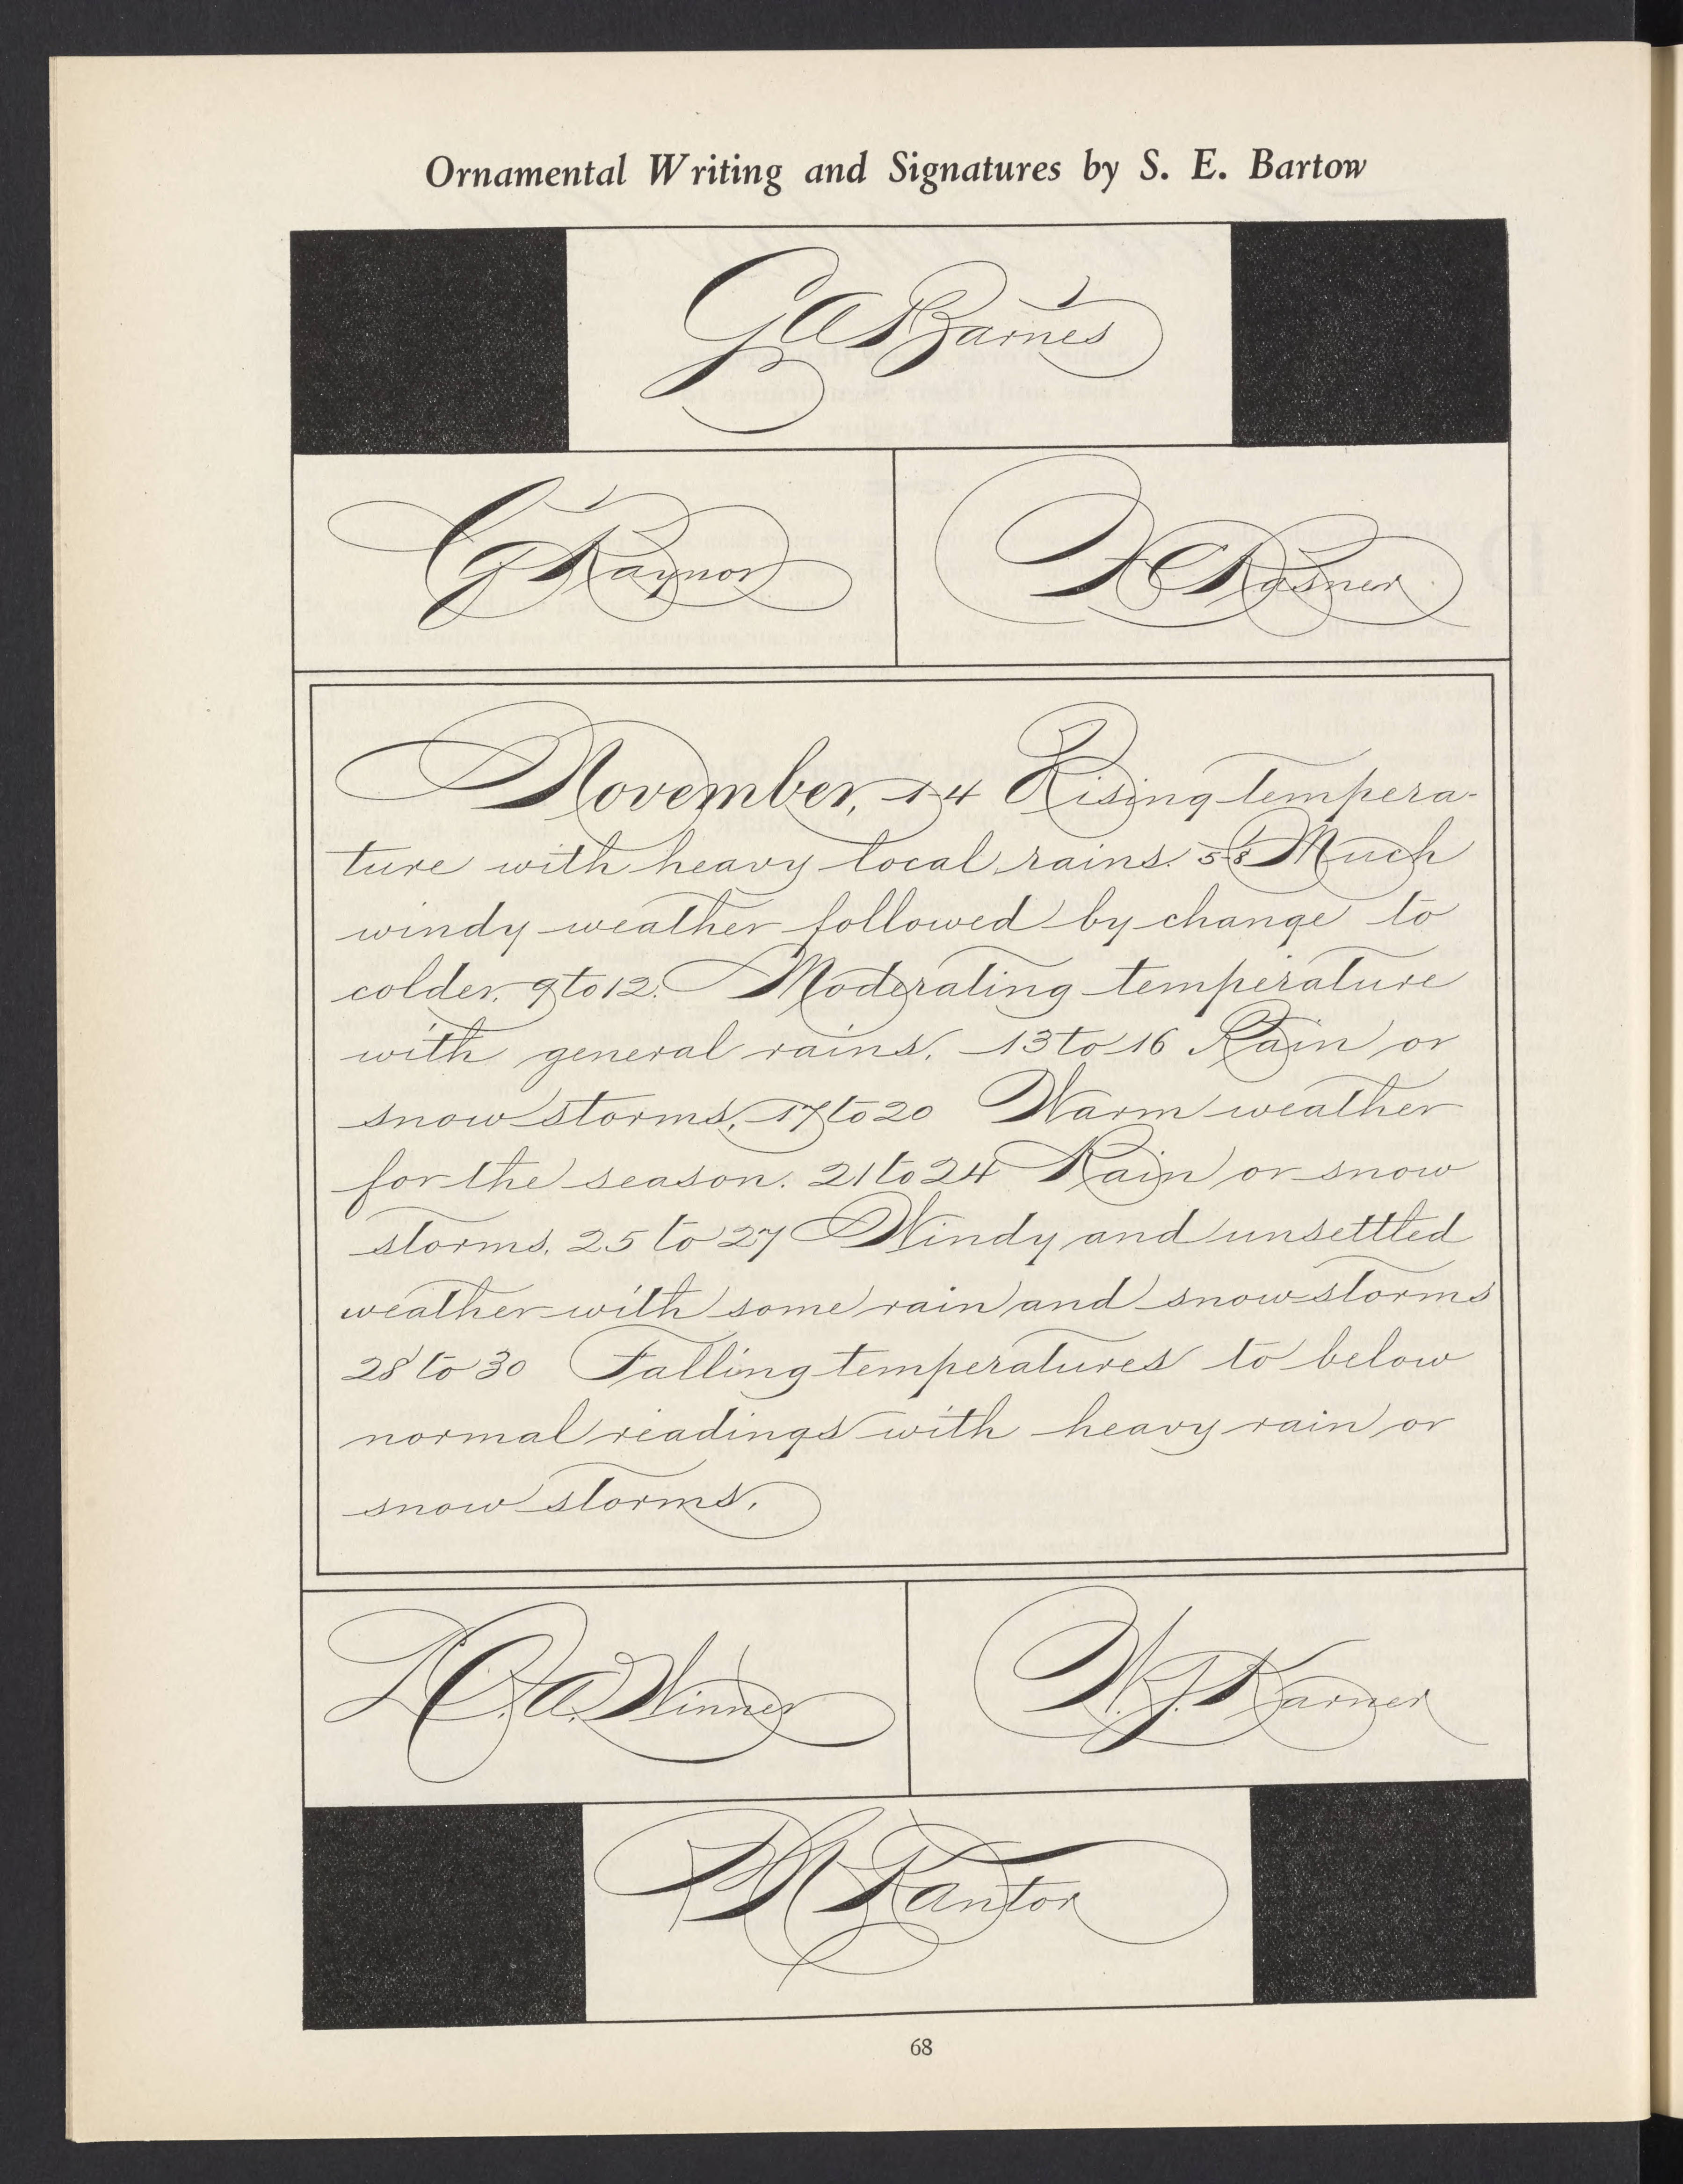 Ornamental Writing and Signatures by S. E. Bartow
G A Barnes
C G Raynor
H C Rosner
November, 1-4 Rising tempera-
ture with heavy local rains. 5-8 Much
windy weather followed by change to
colder. 9 to 12. Moderating temperature
with general rains. 13 to 16 Rain or
snow storms. 17 to 20 Warm weather
for the season. 21 to 24 Rain or snow
storms. 25 to 27 Windy and unsettled
weather with some rain and snow storms
28 to 30 Falling temperatures to below
normal readings with heavy rain or
snow storms.
Winner
W. J. Karner
Kantor
68